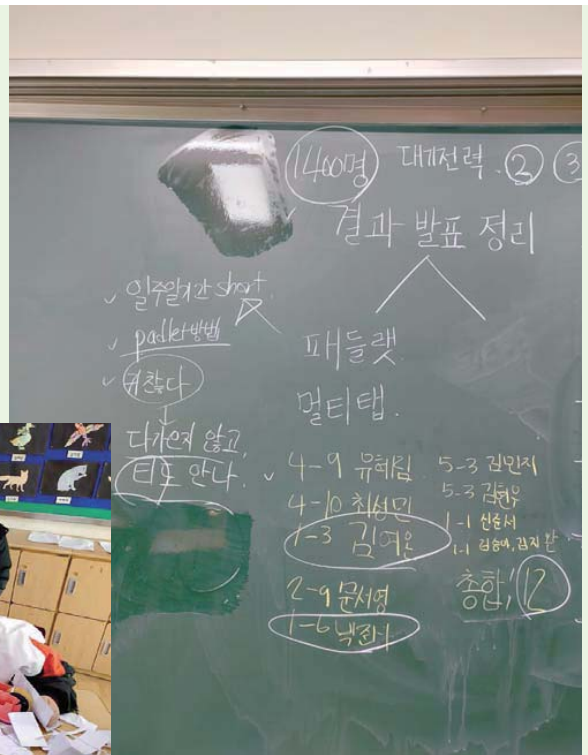 1400명 대기전력. ② ③
결과 발표 정리
일주일기간 short.
padlet방법
귀찮다
다가오지 않고,
티도 안나.
패들랫
멀티탭.
4-9 유혜림
4-10 최성민
1-3 김여은
2-9 문서영
1-6
5-3 김민지
5-3 김현우
1-1 신윤서
1-1 김승아, 김지완
총합! 12